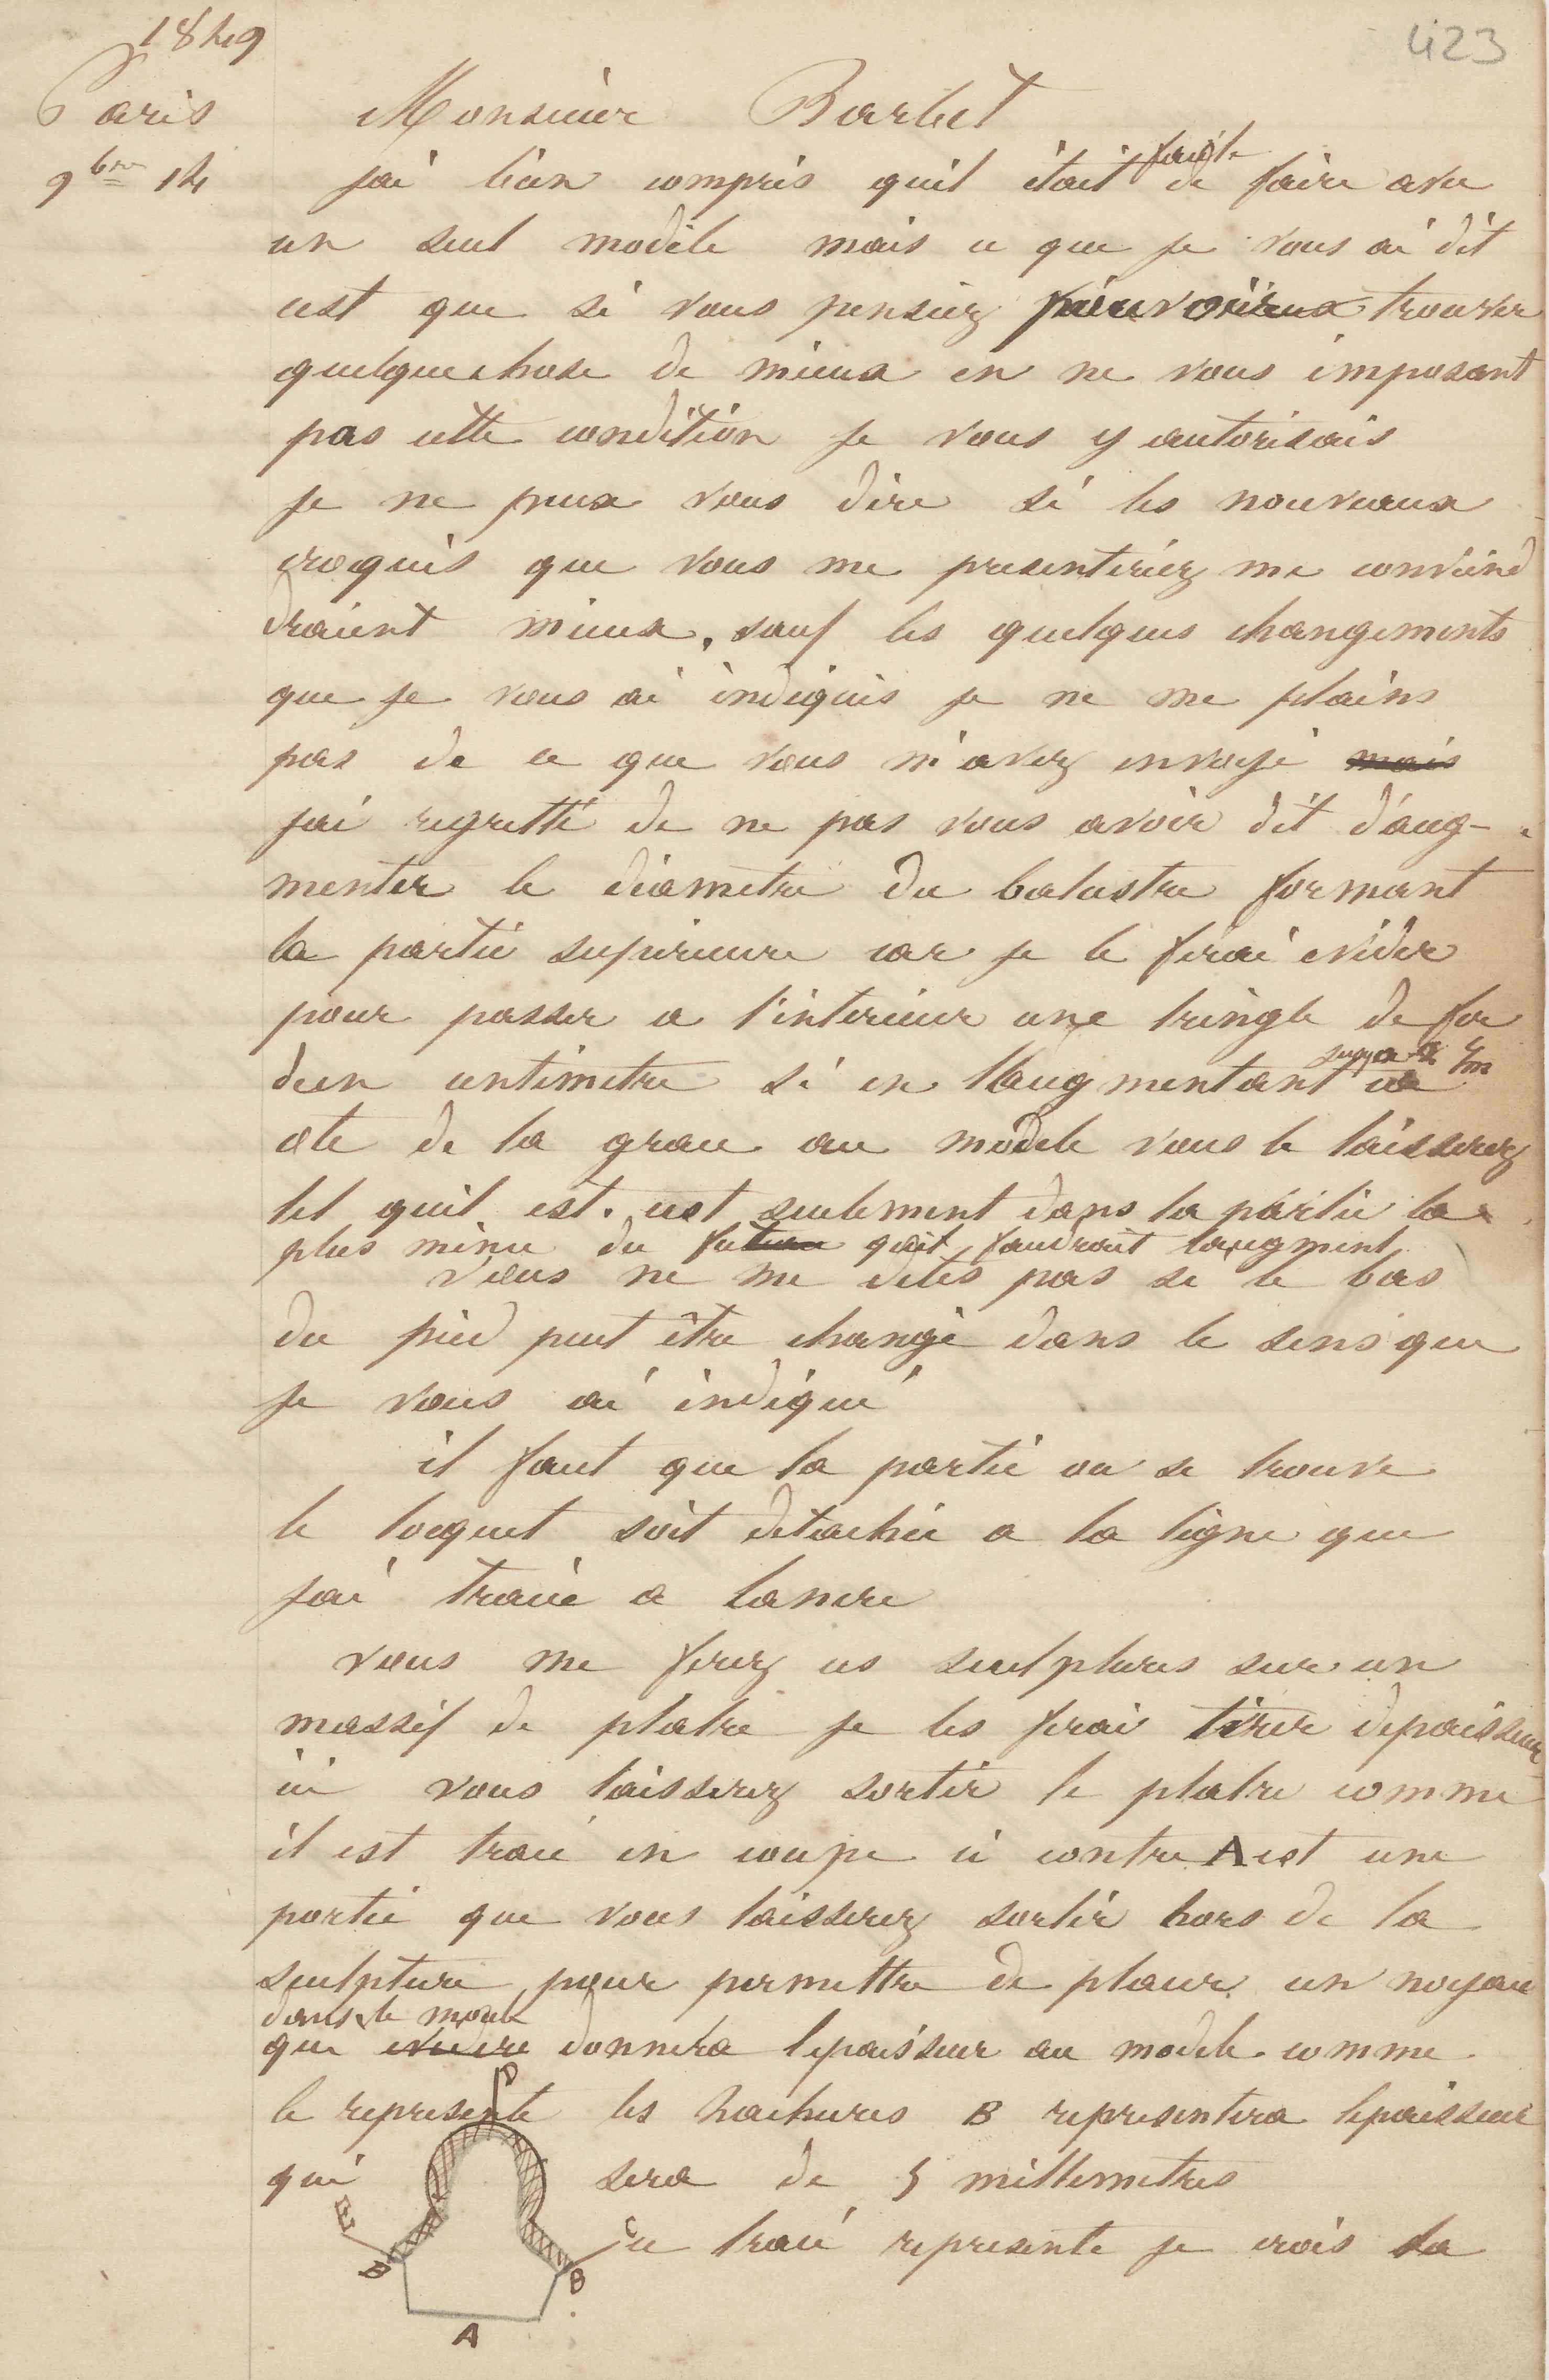 1849
423
Paris
9bre 14
Monsieur Barbet
jai bien compris quil était facile de faire avec
un seul modèle mais ce que je vous ai dit
cest que si vous pensiez pouvoir trouver
quelquechose de mieux en ne vous imposant
pas cette condition je vous y autorisais
je ne peux vous dire si les nouveaux
croquis que vous me presenteriez me conviend
draient mieux, sauf les quelques changements
que je vous ai indiqués je ne me plains
pas de ce que vous m'avez envoyé mais
jai regretté de ne pas vous avoir dit d'aug-
menter le diametre du balustre formant
la partie superieure car je le ferai evider
pour passer a l'interieur une tringle de fer
dun centimetre si en l'augmentant ca
ote de la grace au modele vous le laisserez
tel quil est. cest seulement dans la partie la
plus minu du quil faudrait laugment
vous ne me dites pas si le bas
du pied peut être changé dans le sens que
je vous ai indiqué
il faut que la partie ou se trouve
le loquet soit detachée a la ligne que
jai tracée a lancre
vous me ferez ces sculptures sur un
massif de platre je les ferai tirer depaisseur
ici vous laisserez sortir le platre comme
il est tracé en coupe ci contre A est une
partie que vous laisserez sortir hors de la
sculpture pour permettre de placer un noyau
dans le moule
qui donnera lepaisseur au modele comme
le represente les hachures B representera lepaisseur
qui sera de 5 millemetres
ce tracé represente je crois la
D
E
C
B
B
A